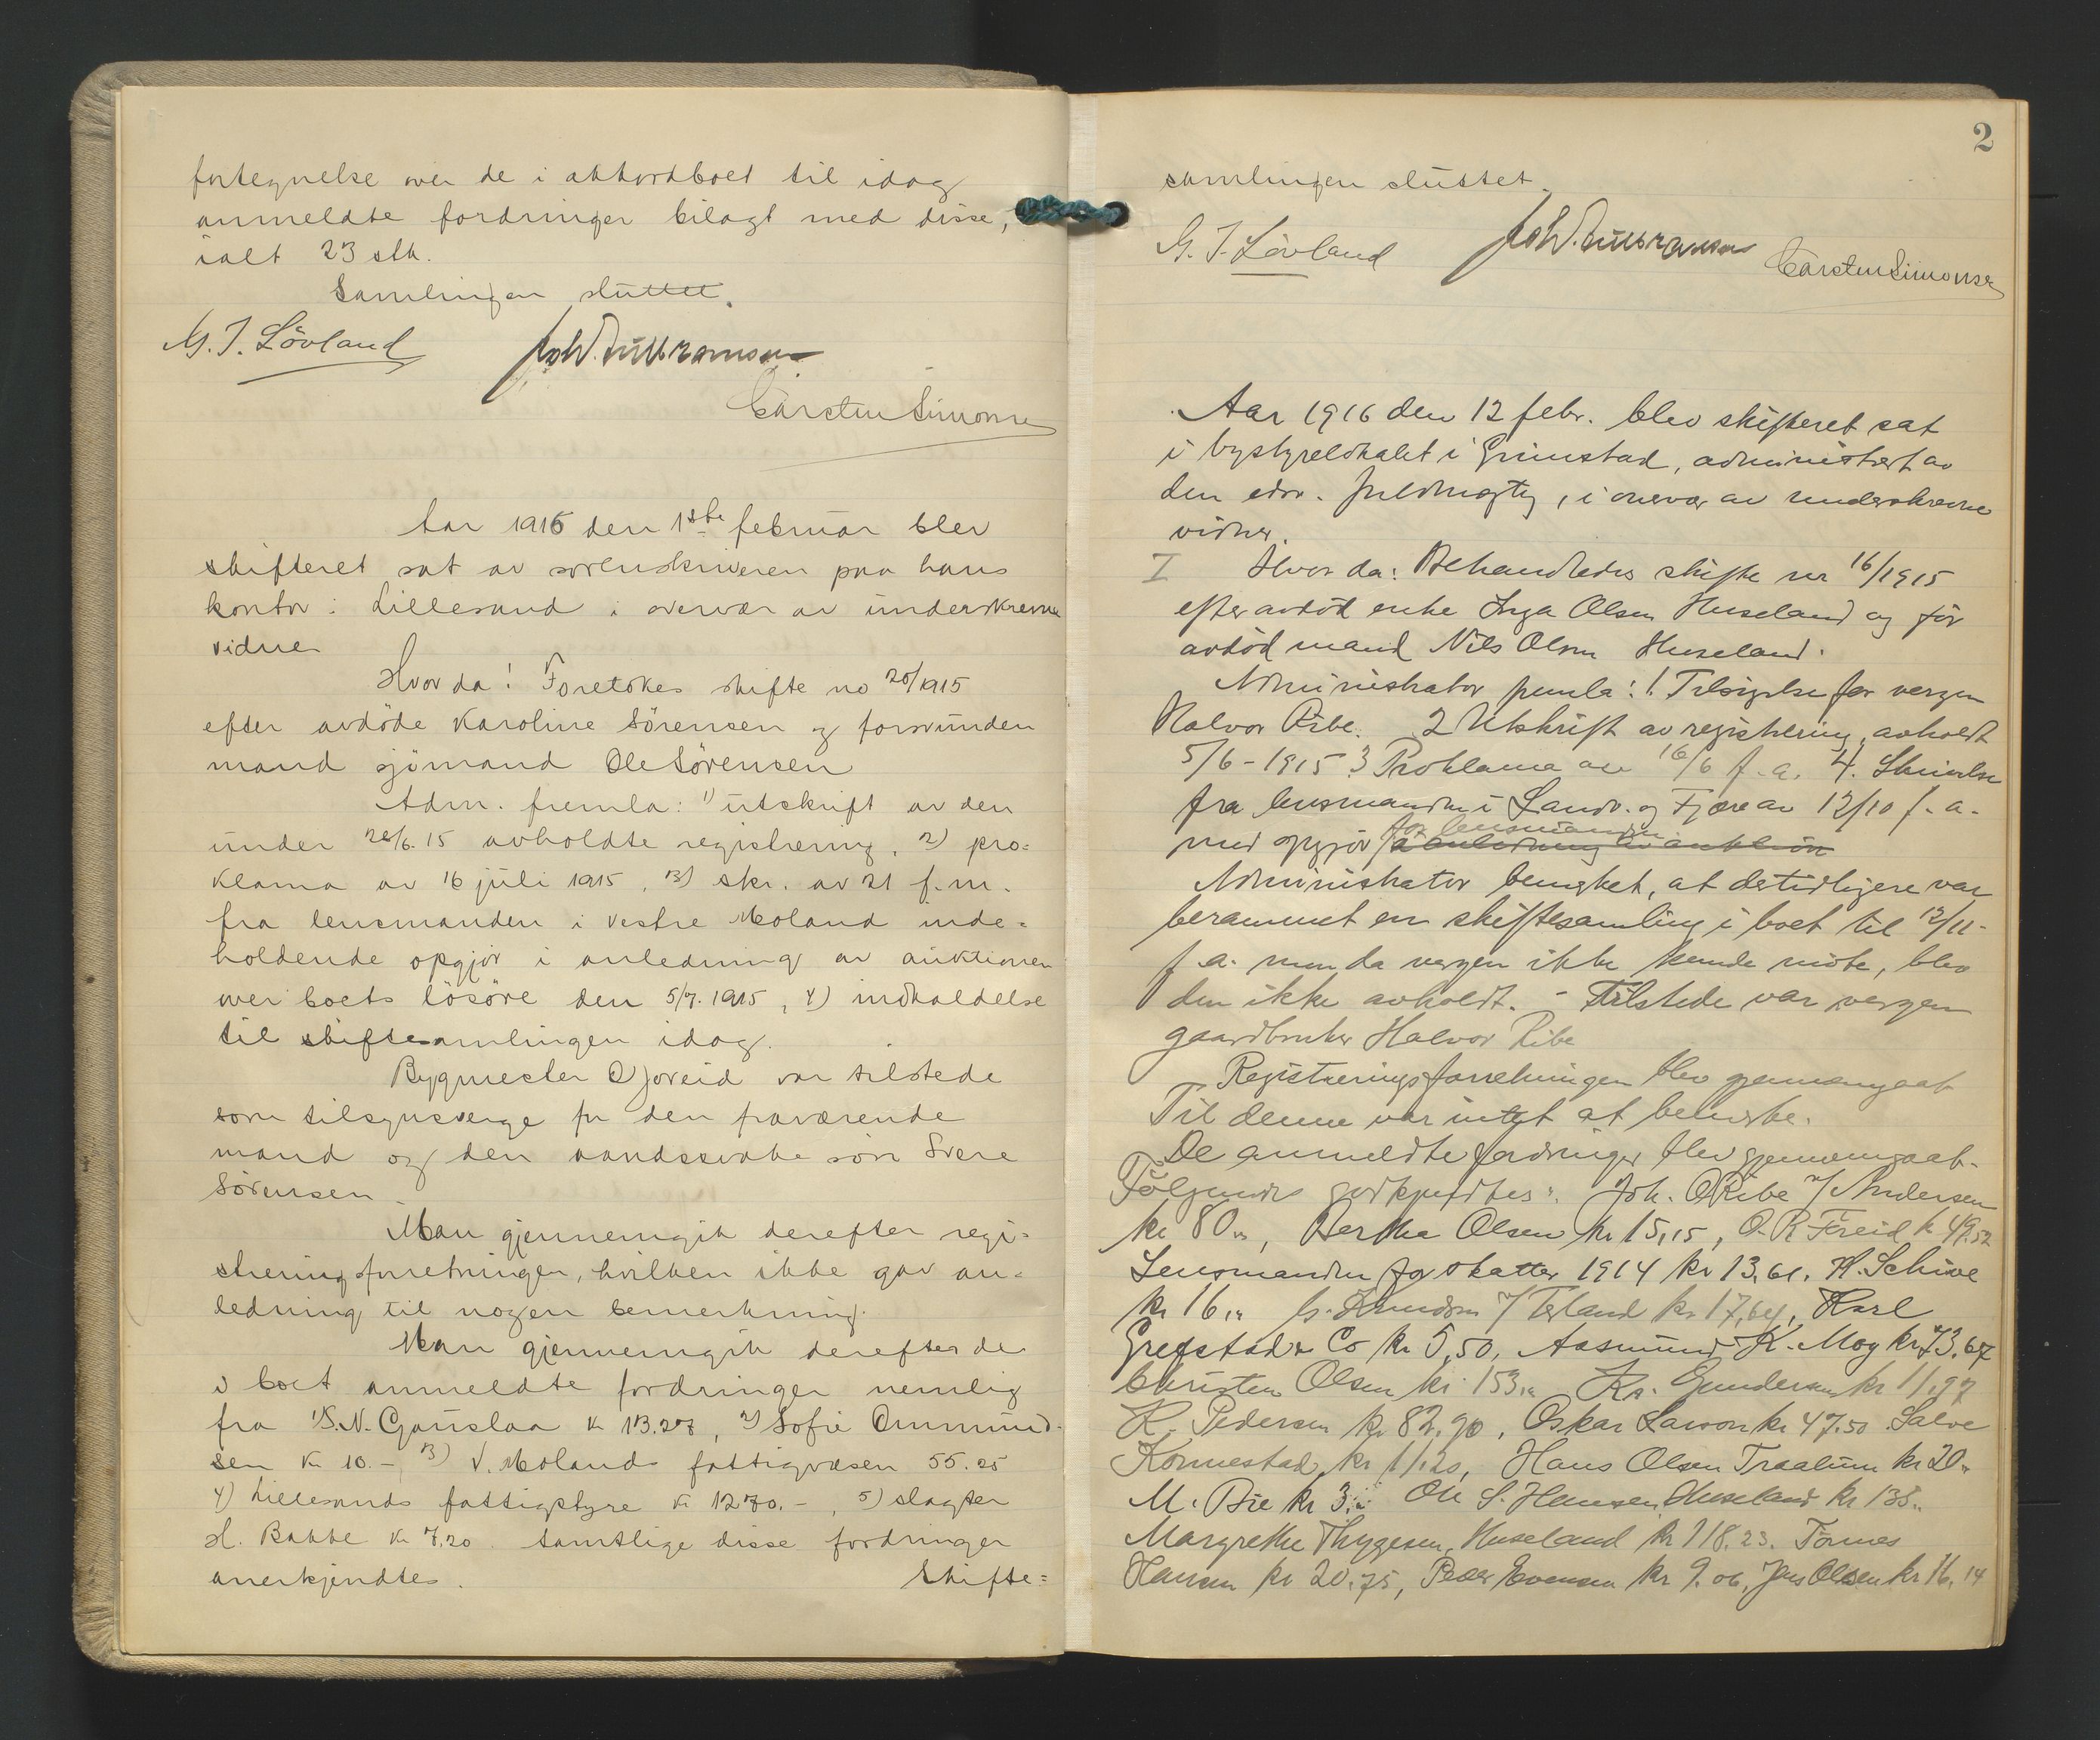 fortegnelse over de i akkordboet til idag
anmeldte fordringer bilagt med disse,
ialt 23 stk.
Samlingen sluttet.
G. T. Lövland
Carsten Simonsen
Aar 1916 den 1ste februar blev
skifteret sat av sorenskriveren paa hans
kontor i Lillesand i overvær av underskrevne
vidner
Hvor da: Foretokes skifte no 20/1915
efter avdöde Karoline Sörensen og forsvunden
mand sjömand Ole Sörensen
Adm. fremla: 1) utskrift av den
under 26/6. 15 avholdte registrering, 2) pro=
klama av 16 juli 1915, 3) skr. av 21 f.m.
fra lensmanden i vestre Moland inde=
holdende opgjör i anledning av auktionen
over boets lösöre den 5/7. 1915, 4) indkaldelse
til skiftesamlingen idag.
Bygmester O Joreid var tilstede
som tilsynsverge for den fraværende
mand og den aandssvake sön Svere
Sörensen.
Man gjennemgik derefter regi=
streringsforretningen, hvilken ikke gav an=
ledning til nogen bemerkning.
Man gjennemgik derefter de
i boet anmeldte fordringer nemlig
fra 1) S. N. Gauslaa kr 13.27, 2) Sofie Ommund-
sen kr 10.- 3) V. Molands fattigvæsen 55.25
4) Lillesands fattigstyre kr 1270.-, 5) slagter
H. Bakke kr 7,20. Samtlige disse fordringer
anerkjendtes. Skifte=
2
samlingen sluttet.
G. T. Lövland
Carsten Simonsen
Aar 1916 den 12 febr. blev skifteret sat
i bystyrelokalet i Grimstad, administrert av
den edsv. fuldmægtig, i overvær av underskrevne
vidner.
I Hvor da: Behandledes skifte nr 16/1915
efter avdöd enke Inga Olsen Huseland og för
avdöd mand Nils Olsen Huseland.
Administrator fremla: 1. Tilsigelse for vergen
Halvor Ribe. 2 Utskrift av registrering, avholdt
5/6-1915 3 Proklama av 16/6 f.a. 4. Skrivelse
fra lensmanden i Landv. og Fjære av 12/10 f.a.
for lensmanden
med opgjör i anledning av auktion
Administrator bemerket, at der tidligere var
berammet en skiftesamling i boet til 12/11-
f.a. men da vergen ikke kunde möte, blev
den ikke avholdt. - Tilstede var vergen
gaardbruker Halvor Ribe
Registreringsforretningen blev gjennemgaat
Til denne var intet at bemerke.
De anmeldte fordringer blev gjennemgaat.
Fölgende godkjendtes: Joh. O Ribe v/ Andersen
kr 80 "", Bertha Olsen kr 15,15, O. R Freid k 49.52
Lensmanden for skatter 1914 kr 13.61. H. Schive
kr 16 "" G. Knudsen v/ Terland kr 17,64, Karl
Grefstad & Co kr 5,50, Aasmund K. Moy kr 73.67
Christen Olsen kr 153 "" Kr. Gundersen kr 11,97
K. Pedersen kr 82.90, Oskar Larson kr 47.50 Salve
Konnestad kr 11.20, Hans Olsen Traalum kr 20 "
M. Bie kr 3 "" Ole S. Hansen Huseland kr 135 "
Margrethe Thygesen, Huseland kr 118.23. Tomes
Hansen kr 20.75, Peder Evensen kr 9.06, Jens Olsen kr 16,14